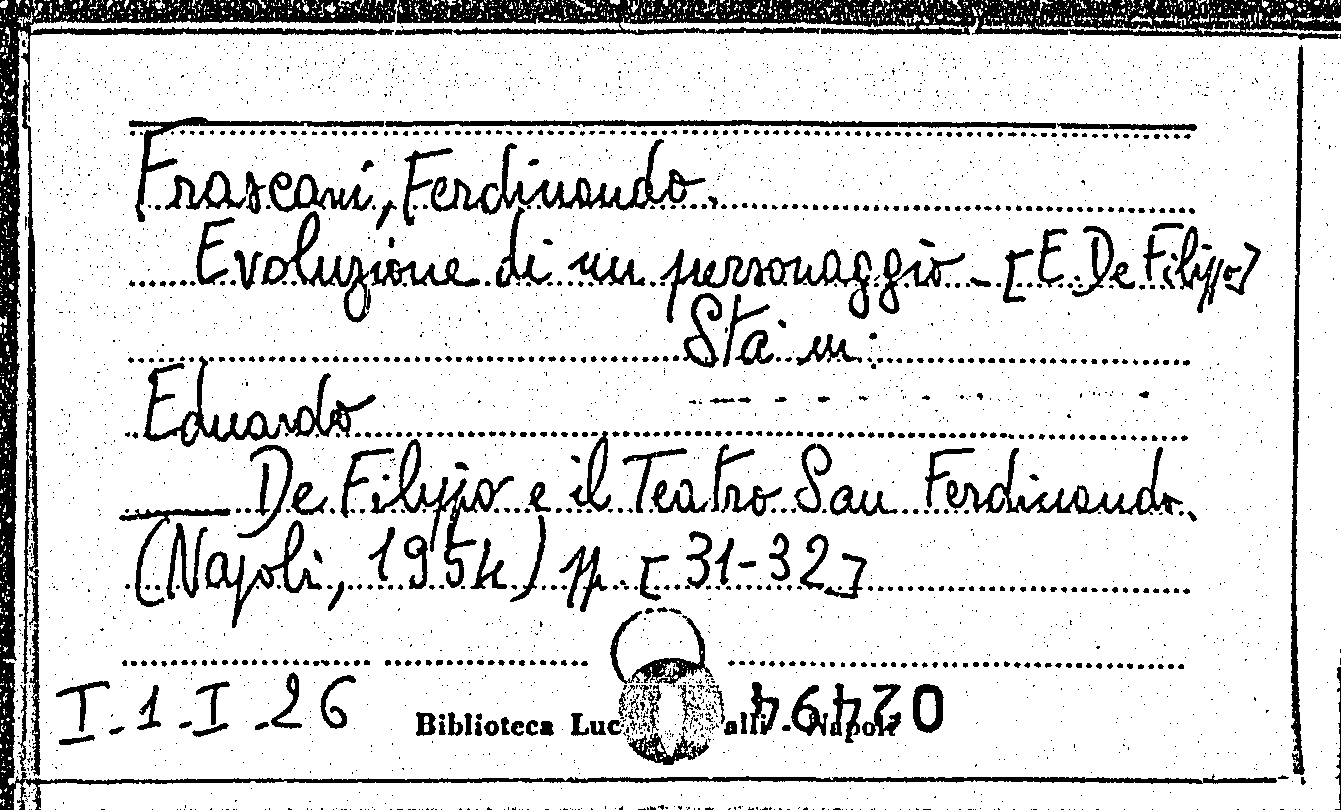 Frascani, Ferdinando.
Evoluzione di un personaggio - [E. De Filippo]
Sta in:
Eduardo
De Filippo e il Teatro San Ferdinando.
(Napoli, 1954) pp. [31-32]
I-1-I-26
Biblioteca Luc alli - Napoli
02494